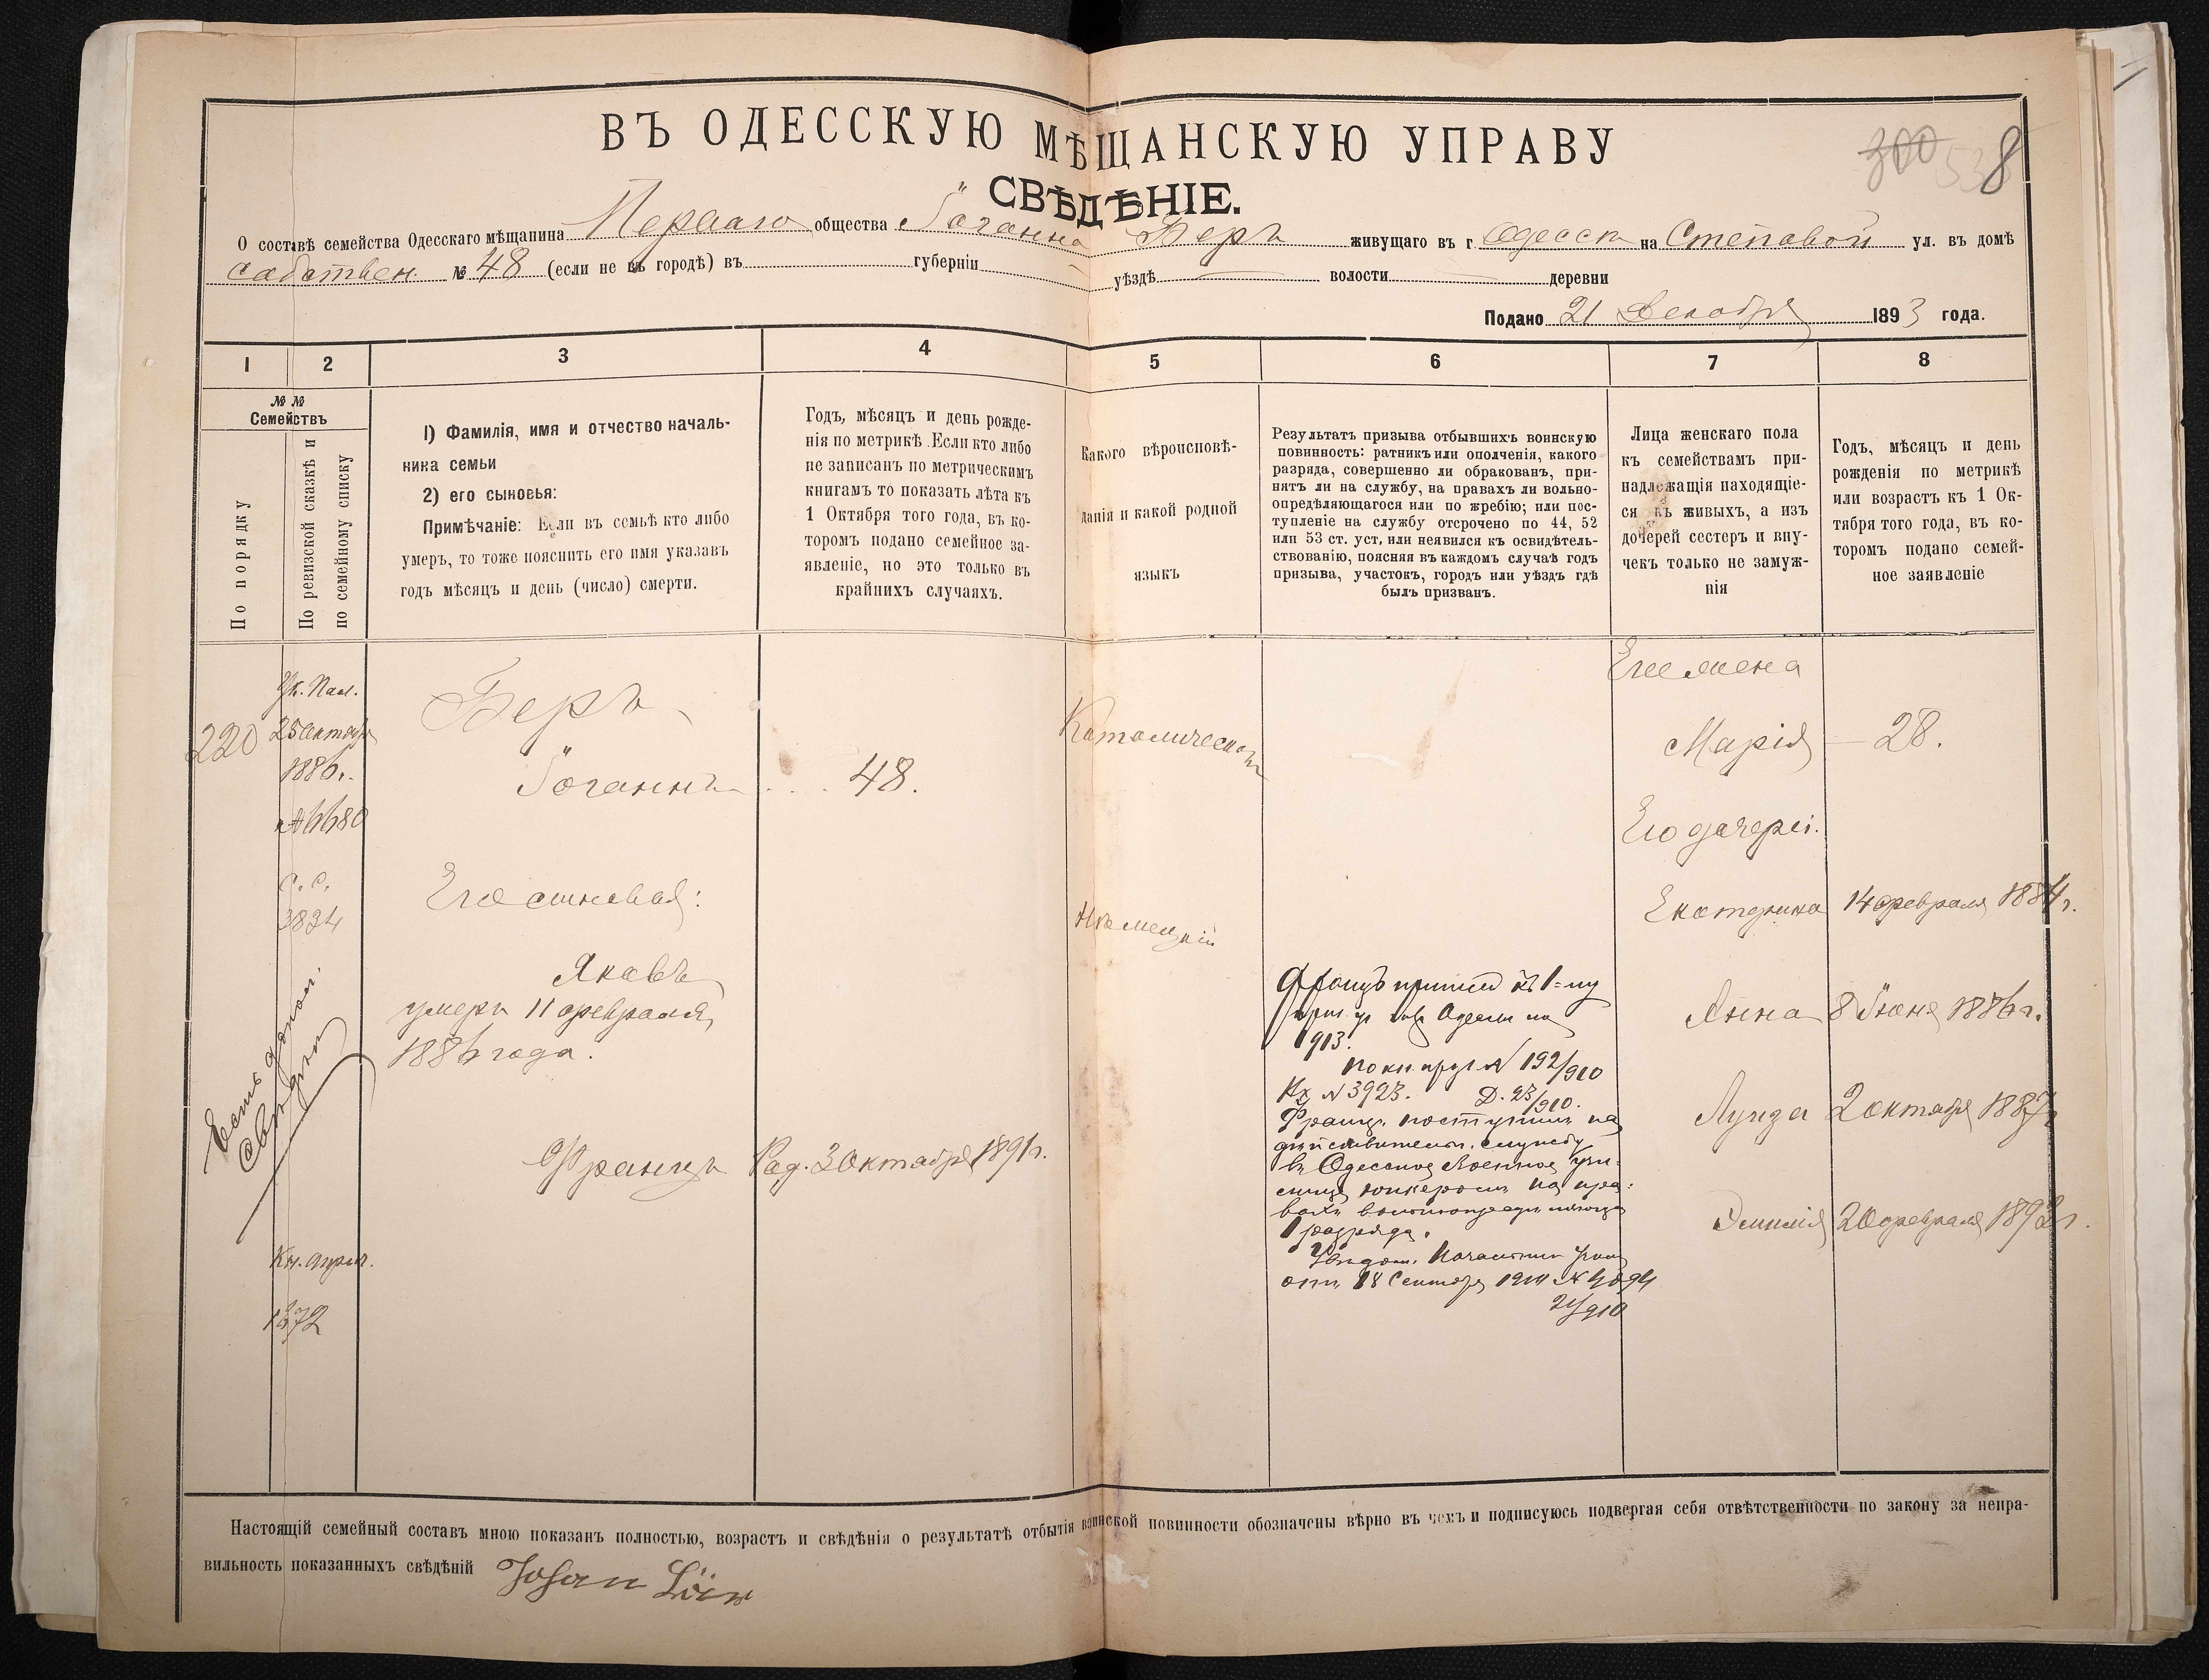 ВЪ ОДЕССКУЮ МѢЩАНСКУЮ УПРАВУ
300 538
СВѢДѢНІЕ.
О составѣ семейства Одесскаго мѣщанина Перваго общества Іоганна Беръ живущаго въ г. Одессѣ на Степовой ул. въ домѣ
собствен. № 48 (если не въ городѣ) въ губерніи уѣздѣ волости деревни
Подано 21 Декабря 1893 года.
1 2 3 4 5 6 7 8
№ № Семействъ
По порядку
По ревизской сказкѣ и
по семейному списку
1) Фамилія, имя и отчество началь-
ника семьи
2) его сыновья:
Примѣчаніе: Если въ семьѣ кто либо
умеръ, то тоже пояснить его имя указавъ
годъ мѣсяцъ и день (число) смерти.
Годъ, мѣсяцъ и день рожде-
нія по метрикѣ. Если кто либо
не записанъ по метрическимъ
книгамъ то показать лѣта къ
1 Октября того года, въ ко-
торомъ подано семейное за-
явленіе, но это только въ
крайнихъ случаяхъ.
Какого вѣроисповѣ-
данія и какой родной
языкъ
Результатъ призыва отбывшихъ воинскую
повинность: ратникъ или ополченія, какого
разряда, совершенно ли обракованъ, при-
нятъ ли на службу, на правахъ ли вольно-
опредѣляющагося или по жребію; или пос-
тупленіе на службу отсрочено по 44, 52
или 53 ст. уст, или неявился къ освидѣтель-
ствованію, поясняя въ каждомъ случаѣ годъ
призыва, участокъ, городъ или уѣздъ гдѣ
былъ призванъ.
Лица женскаго пола
къ семействамъ при-
надлежащія находящіе-
ся въ живыхъ, а изъ
дочерей сестеръ и вну-
чекъ только не замуж-
нія
Годъ, мѣсяцъ и день
рожденія по метрикѣ
или возрастъ къ 1 Ок-
тября того года, въ ко-
торомъ подано семей-
ное заявленіе
220
Ук. Пал.
25 октября
1886 г.
№ 6680
с. с.
3834
Кн. апрѣл.
1372
Беръ
Іоганнъ 48.
Его сыновья:
Яковъ
умеръ 11 февраля
1886 года.
Францъ Род. 3 Октября 1891 г.
Католическаго
Нѣмецкій
1913.
№ 192/910
№ 3923. Д. 23/910.
Францъ поступилъ на
дѣйствительн. службу
въ Одесское Военное учи-
лище юнкеромъ на пра-
вахъ вольноопредѣляющ.
1 разряда.
отъ 18 Сентября 1910 № 4094
21/910
Его жена
Марія 28.
Его дочери:
Екатерина 14 февраля 1884 г.
Анна 8 Іюня 1886 г.
Луиза 2 октября 1887 г.
Эмилія 20 февраля 1893 г.
Настоящій семейный составъ мною показанъ полностью, возрастъ и свѣдѣнія о результатѣ отбытія воинской повинности обозначены вѣрно въ чемъ и подписуюсь подвергая себя отвѣтственности по закону за непра-
вильность показанныхъ свѣдѣній Johan